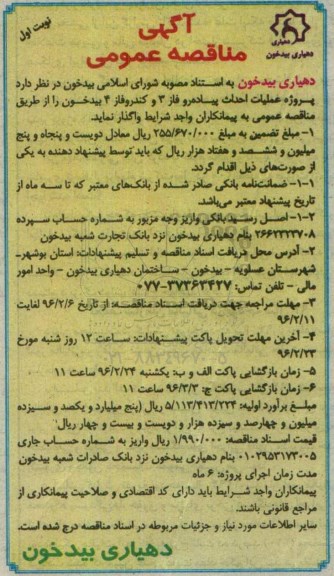 آگهی
مناقصه عمومی
نوبت اول
دهیاری
بیدخون
دهیاری بیدخون به استناد مصوبه شورای اسلامی بیدخون در نظر دارد
پروژه عملیات احداث پیاده‌رو فاز ۳ و کندروفاز ۴ بیدخون را از طریق
مناقصه عمومی به پیمانکاران واجد شرایط واگذار نماید.
۱- مبلغ تضمین به مبلغ ۲۵۵/۶۷۰/۰۰۰ ریال معادل دویست و پنجاه و پنج
میلیون و ششصد و هفتاد هزار ریال که باید توسط پیشنهاد دهنده به یکی
از صورت‌های ذیل اقدام گردد.
۱-۱- ضمانت‌نامه بانکی صادر شده از بانک‌های معتبر که تا سه ماه از
تاریخ پیشنهاد معتبر می‌باشد.
۱-۲- اصل رسید بانکی واریز وجه مزبور به شماره حساب سپرده
۲۶۶۲۳۲۳۷۰۸ بنام دهیاری بیدخون نزد بانک تجارت شعبه بیدخون
۲- آدرس محل دریافت اسناد مناقصه و تسلیم پیشنهادات: استان بوشهر-
شهرستان عسلویه - بیدخون - ساختمان دهیاری بیدخون - واحد امور
مالی - تلفن تماس: ۳۷۳۶۳۴۲۷-۰۷۷
۳- مهلت مراجعه جهت دریافت اسناد مناقصه: از تاریخ ۹۶/۲/۶ لغایت
۹۶/۲/۱۱
۴- آخرین مهلت تحویل پاکت پیشنهادات: ساعت ۱۲ روز شنبه مورخ
۹۶/۲/۲۳
۵- زمان بازگشایی پاکت الف و ب: یکشنبه ۹۶/۲/۲۴ ساعت ۱۱
۶- زمان بازگشایی پاکت ج: ۹۶/۳/۳ ساعت ۱۱
مبلغ برآورد اولیه: ۵/۱۱۳/۴۱۳/۲۲۴ ریال (پنج میلیارد و یکصد و سیزده
میلیون و چهارصد و سیزده هزار و دویست و بیست و چهار ریال)
قیمت اسناد مناقصه: ۱/۹۹۰/۰۰۰ ریال واریز به شماره حساب جاری
۰۱۰۲۹۵۳۱۷۳۰۰۵ بنام دهیاری بیدخون نزد بانک صادرات شعبه بیدخون
مدت زمان اجرای پروژه: ۶ ماه
پیمانکاران واجد شرایط باید دارای کد اقتصادی و صلاحیت پیمانکاری از
مراجع قانونی باشند.
سایر اطلاعات مورد نیاز و جزئیات مربوطه در اسناد مناقصه درج شده است.
دهیاری بیدخون